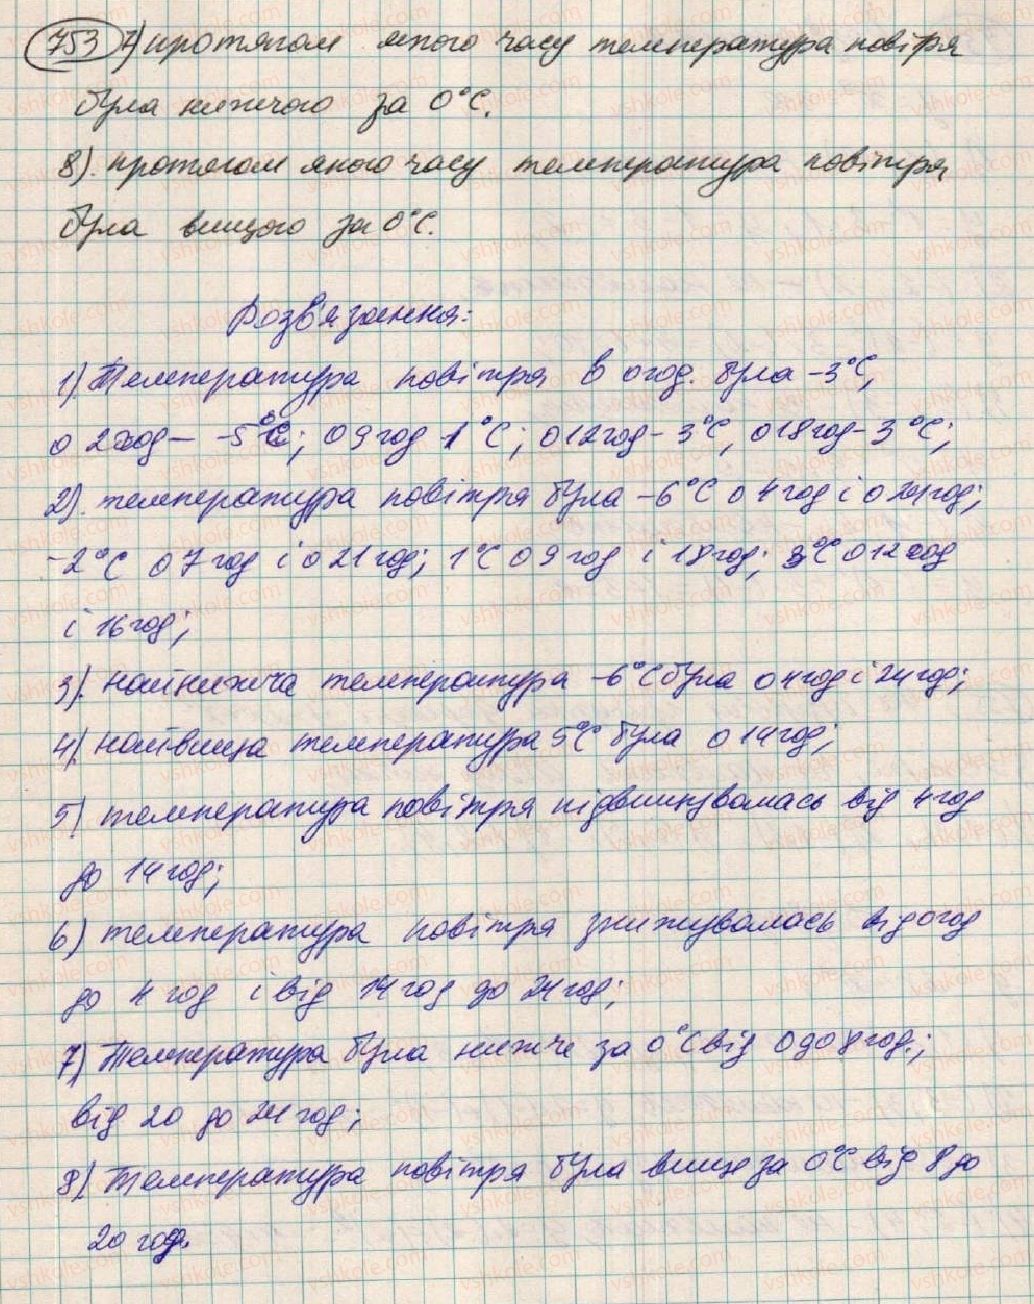 753 7) протягом якого часу температура повітря
була нижчого за 0°C.
8). протягом якого часу температура повітря
була вищого за 0°C.
Розв'язання:
1) Температура повітря в 0 год. була -3°C,
о 2 год - -5°C; о 9 год 1°C; о 12 год - 3°C, о 18 год - 3°C;
2). температура повітря була -6°C о 4 год і о 24 год;
-2°C о 7 год і о 21 год; 1°C о 9 год і 18 год; 3°C о 12 год
і 16 год;
3). найнижча температура -6°C була о 4 год і 24 год;
4) найвища температура 5°C була о 14 год;
5) температура повітря підвищувалась від 4 год
до 14 год;
6) температура повітря знижувалась від 0 год
до 4 год і від 14 год до 24 год;
7) Температура була нижче за 0°C від 0 до 8 год.;
від 20 до 24 год;
8) Температура повітря була вище за 0°C від 8 до
20 год.